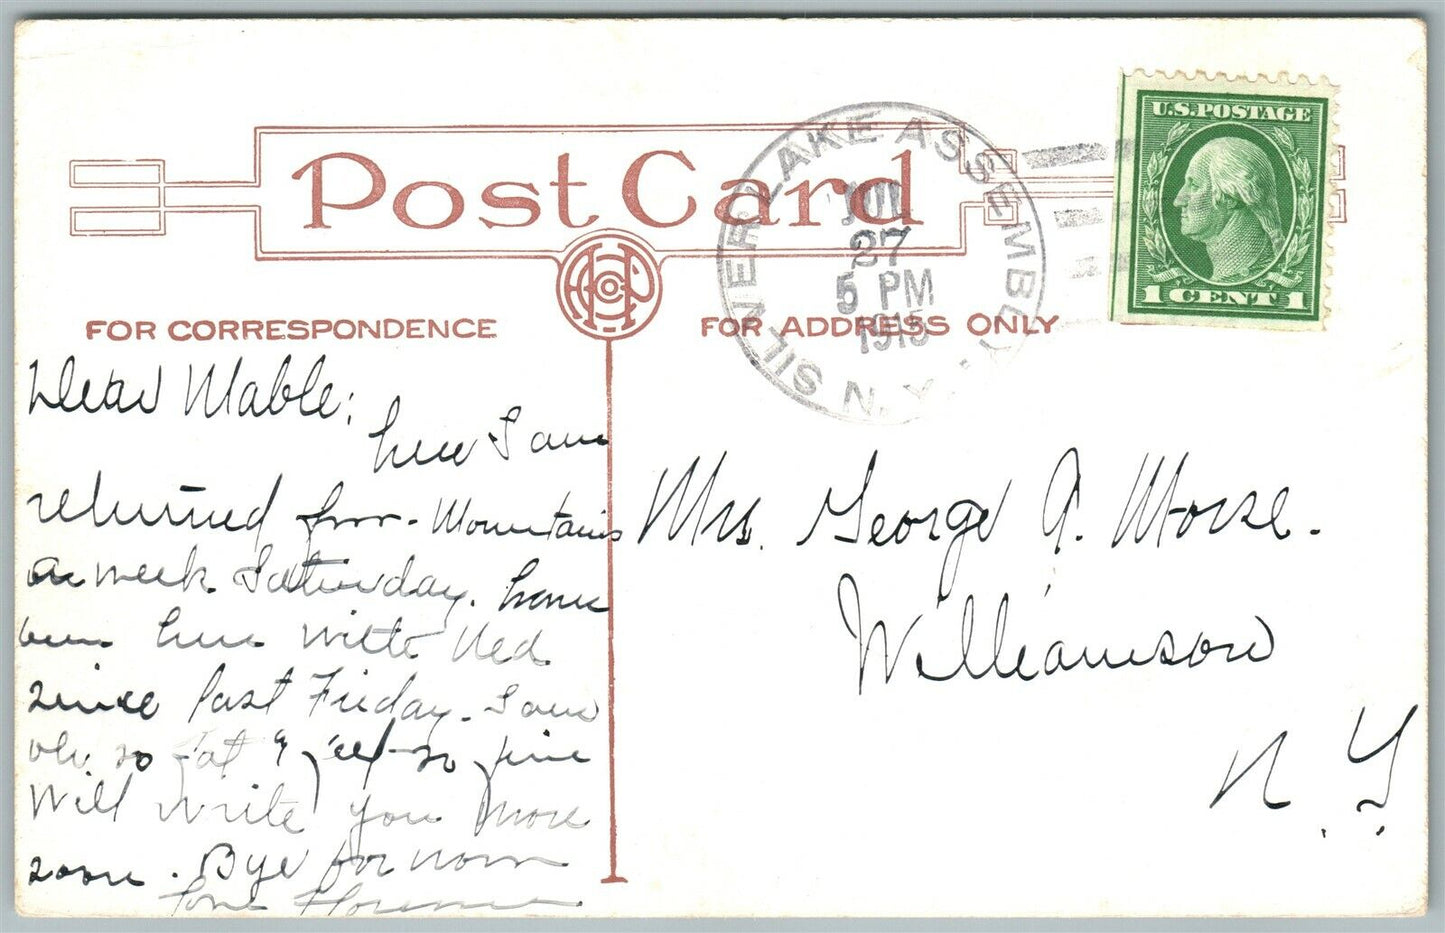 Post Card
SILVER LAKE ASSEMBLY. N.Y.
JUL
27
5 PM
1915
U.S. POSTAGE
1 CENT 1
FOR CORRESPONDENCE
FOR ADDRESS ONLY
Dear Mable:
here I am
returned from Mountains
a week Saturday. have
been here with Ned
since last Friday. I am
oh. so fat & feel so fine
Will write you more
soon. Bye for now
Love Florence
Mrs. George A. Morse.
Williamson
N.Y.